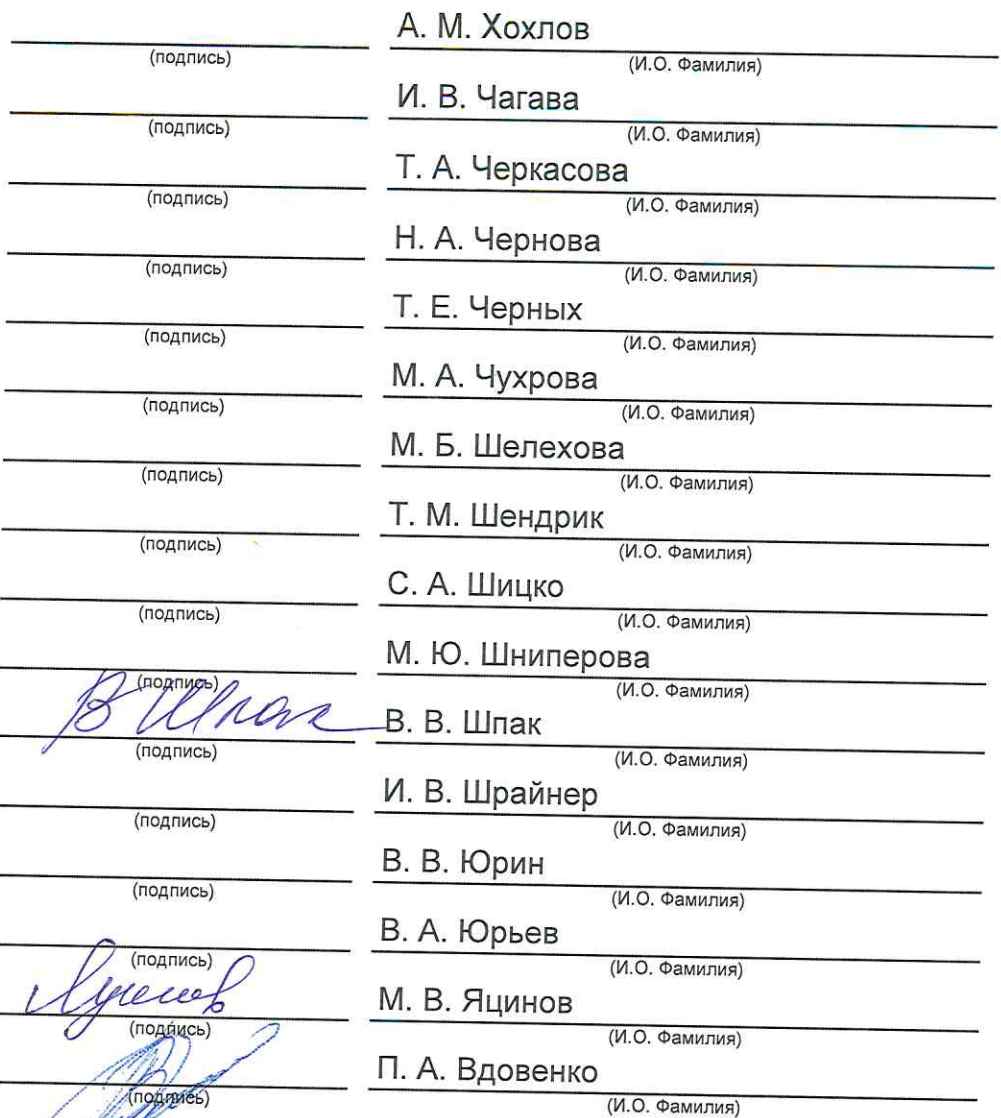 А. М. Хохлов
(подпись) (И.О. Фамилия)
И. В. Чагава
(подпись) (И.О. Фамилия)
Т. А. Черкасова
(подпись) (И.О. Фамилия)
Н. А. Чернова
(подпись) (И.О. Фамилия)
Т. Е. Черных
(подпись) (И.О. Фамилия)
М. А. Чухрова
(подпись) (И.О. Фамилия)
М. Б. Шелехова
(подпись) (И.О. Фамилия)
Т. М. Шендрик
(подпись) (И.О. Фамилия)
С. А. Шицко
(подпись) (И.О. Фамилия)
М. Ю. Шниперова
(подпись) (И.О. Фамилия)
В Шпак В. В. Шпак
(подпись) (И.О. Фамилия)
И. В. Шрайнер
(подпись) (И.О. Фамилия)
В. В. Юрин
(подпись) (И.О. Фамилия)
В. А. Юрьев
(подпись) (И.О. Фамилия)
М. В. Яцинов
(подпись) (И.О. Фамилия)
П. А. Вдовенко
(подпись) (И.О. Фамилия)